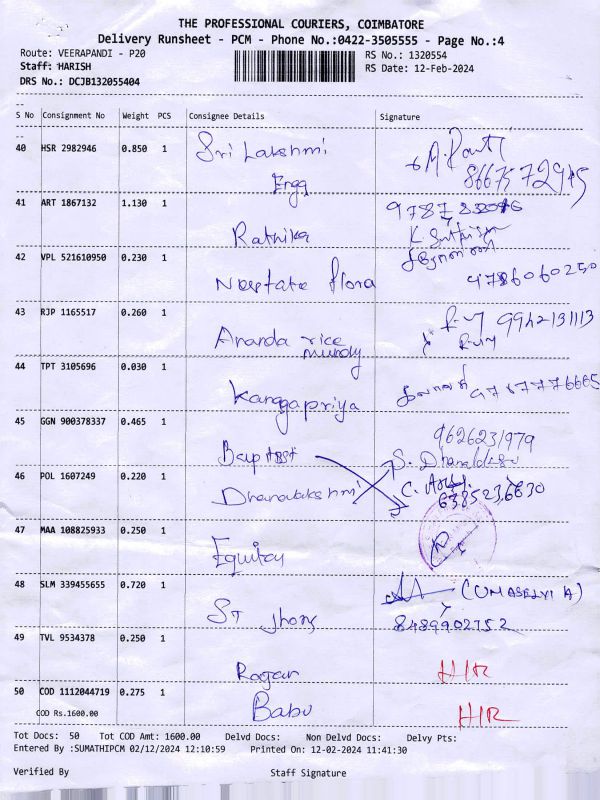 THE PROFESSIONAL COURIERS, COIMBATORE
Delivery Runsheet - PCM - Phone No.:0422-3505555 - Page No.:4
Route: VEERAPANDI - P20
RS No.: 1320554
Staff: HARISH
RS Date: 12-Feb-2024
DRS No.: DCJB132055404
S No Consignment No Weight PCS Consignee Details Signature
40 HSR 2982946 0.850 1 Sri Lakshmi
Engg
41 ART 1867132 1.130 1
Rathika
42 VPL 521610950 0.230 1
flora 9786060250
43 RJP 1165517 0.260 1 9942131113
Ananda rice
mundy
44 TPT 3105696 0.030 1
Kangapriya
45 GGN 900378337 0.465 1
9626231979
Baptist
46 POL 1607249 0.220 1
Dhanalakshmi
47 MAA 108825933 0.250 1
Equitay
48 SLM 339455655 0.720 1 (UMASELVI A)
ST jhons 8489902752
49 TVL 9534378 0.250 1
Rajan
50 COD 1112044719 0.275 1 Babu
COD Rs.1600.00
Tot Docs: 50 Tot COD Amt: 1600.00 Delvd Docs: Non Delvd Docs: Delvy Pts:
Entered By :SUMATHIPCM 02/12/2024 12:10:59 Printed On: 12-02-2024 11:41:30
Verified By Staff Signature